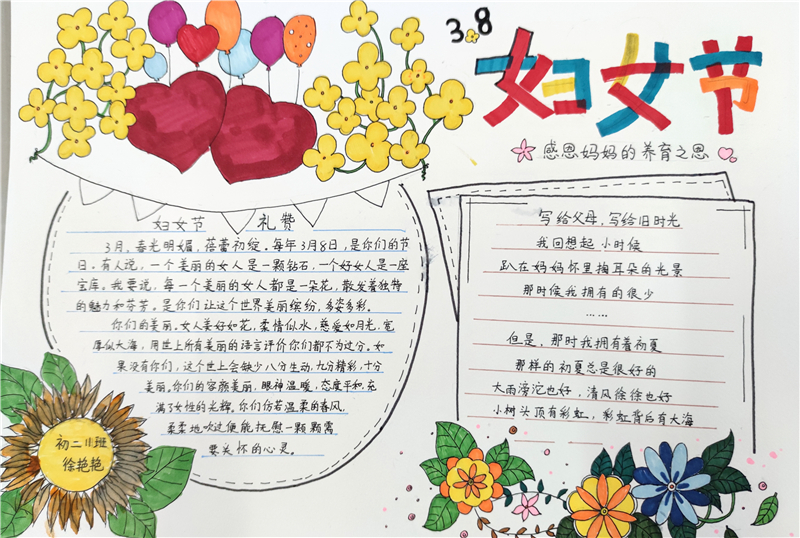 3 8
妇女节
感恩妈妈的养育之恩
妇女节 礼赞
3月，春光明媚，蓓蕾初绽。每年3月8日，是你们的节
日。有人说，一个美丽的女人是一颗钻石，一个好女人是一座
宝库。我要说，每一个美丽的女人都是一朵花，散发着独特
的魅力和芬芳。是你们让这个世界美丽缤纷，多姿多彩。
你们的美丽。女人美好如花，柔情似水，慈爱如月光，宽
厚似大海，用世上所有美丽的语言评价你们都不为过分。如
果没有你们，这个世上会缺少八分生动，九分精彩，十分
美丽。你们的容颜美丽，眼神温暖，态度平和，充
满了女性的光辉。你们仿若温柔的春风，
柔柔地吹过便能抚慰一颗颗需
要关怀的心灵。
初二11班
徐艳艳
写给父母，写给旧时光
我回想起小时候
趴在妈妈怀里掏耳朵的光景
那时候我拥有的很少
……
但是，那时我拥有着初夏
那样的初夏总是很好的
大雨滂沱也好，清风徐徐也好
小树头顶有彩虹，彩虹背后有大海